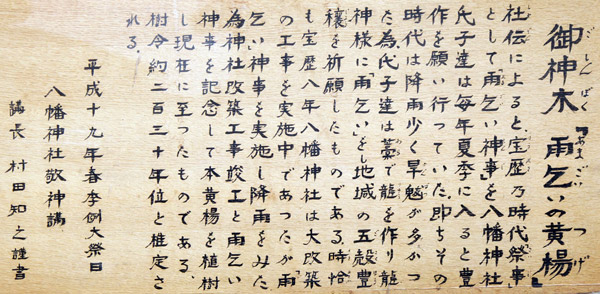 御神木 『雨乞いの黄楊』
ごしんぼく あまごい つげ
社伝によると宝歴乃時代祭事
として雨乞い神事を八幡神社
氏子達は毎年夏季に入ると豊
作を願い行っていた。即ちその
時代は降雨少く旱魃が多かつ
た為、氏子達は藁で龍を作り龍
神様に「雨乞い」をし地域の五穀豊
穣を祈願したものである。時恰
も宝歴八年八幡神社は大改築
の工事を実施中であつたが「雨
乞い」神事を実施し降雨をみた
為神社改築工事竣工と雨乞い
神事を記念して本黄楊を植樹
し現在に至つたものである。
樹令約二百三十年位と推定さ
れる。
平成十九年春季例大祭日
八幡神社敬神講
講長 村田知之謹書